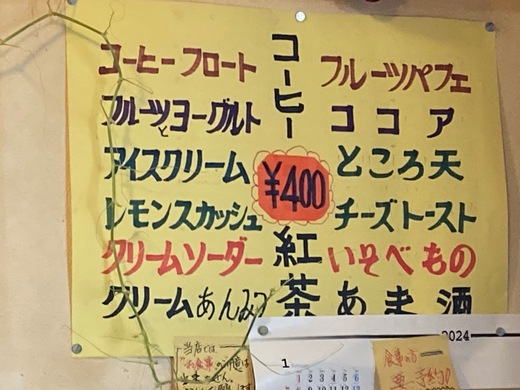 コーヒーフロート
フルーツとヨーグルト
アイスクリーム
レモンスカッシュ
クリームソーダー
クリームあんみつ
コーヒー
¥400
紅茶
フルーツパフェ
ココア
ところ天
チーズトースト
いそべもの
あま酒
当店では
お食事の
2024
1